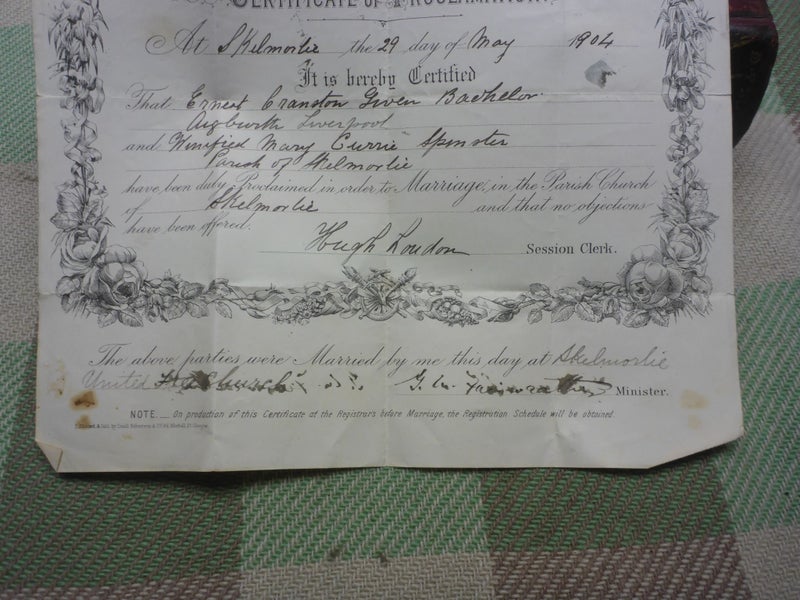 CERTIFICATE OF PROCLAMATION.
At Skelmorlie the 29 day of May 1904
It is hereby Certified
That Ernest Cranston Given Bachelor
Aigburth Liverpool
and Winifred Mary Currie Spinster
Parish of Skelmorlie
have been duly Proclaimed in order to Marriage, in the Parish Church
of Skelmorlie and that no objections
have been offered.
Hugh Loudon Session Clerk.
The above parties were Married by me this day at Skelmorlie
United Church G. W. Minister.
NOTE._ On production of this Certificate at the Registrars before Marriage, the Registration Schedule will be obtained.